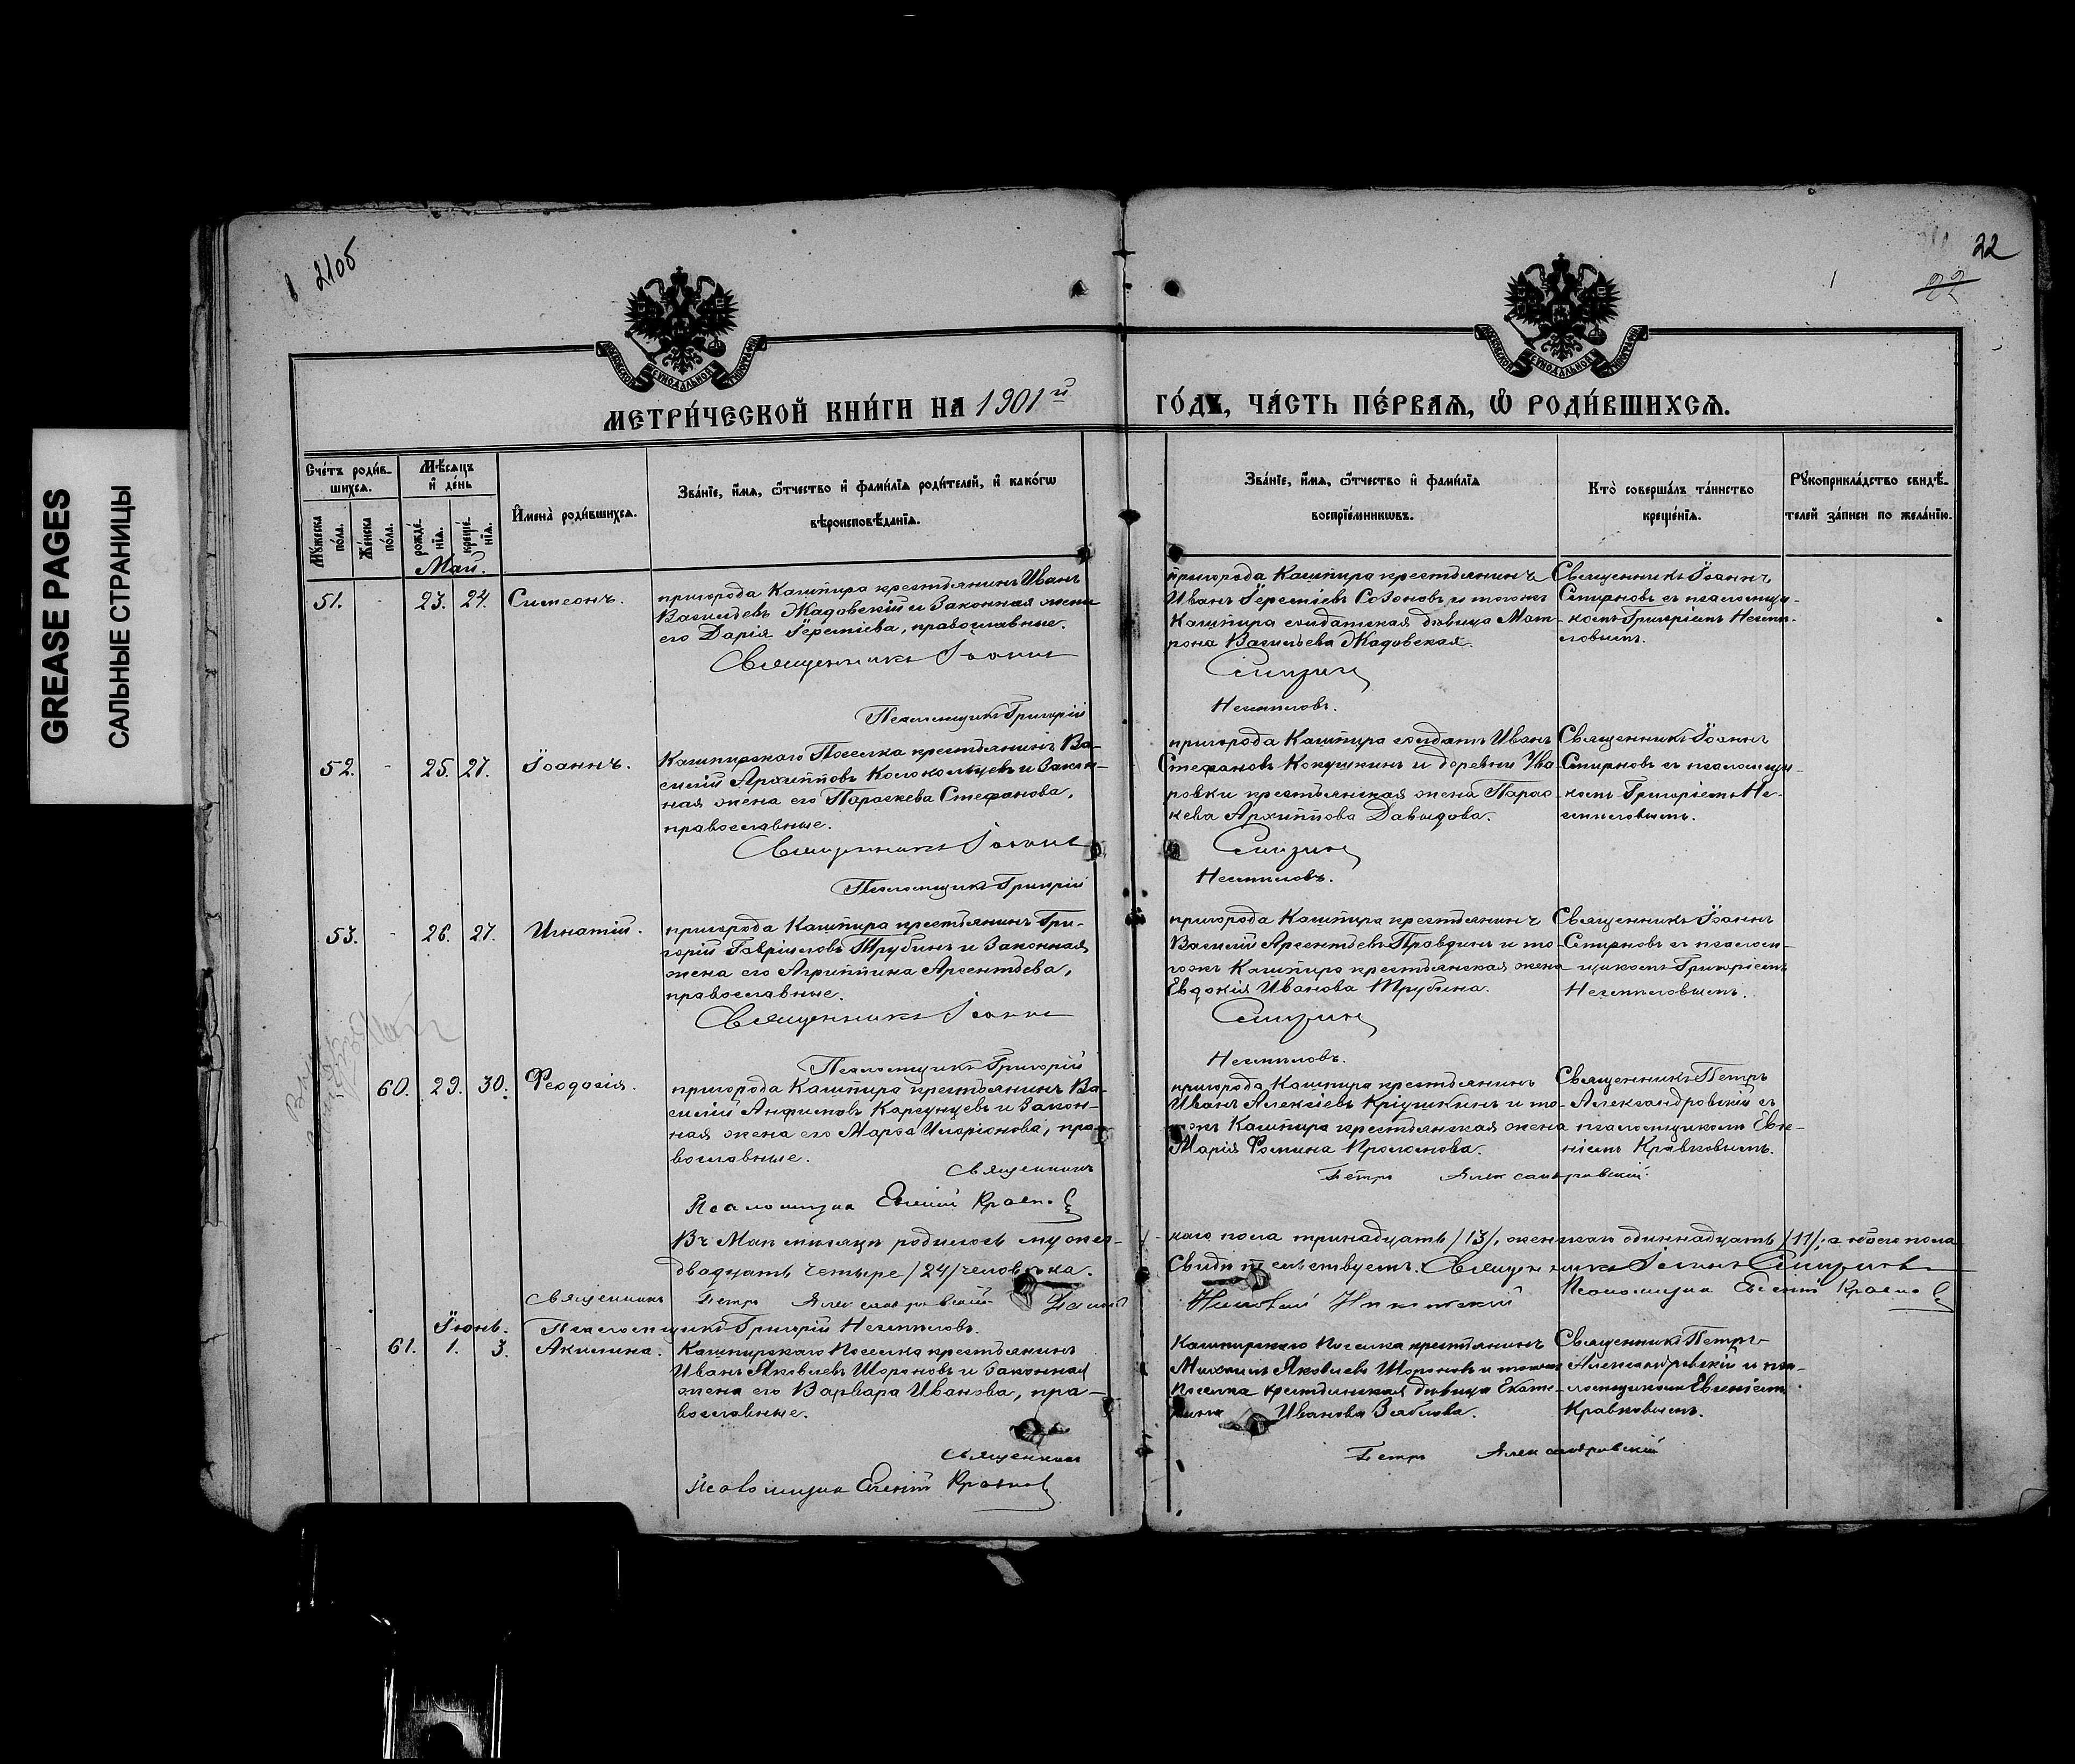 GREASE PAGES
САЛЬНЫЕ СТРАНИЦЫ
21об
22
22
МОСКОВСКОЙ СѴНОДАЛЬНОЙ ТИПОГРАФІИ
МОСКОВСКОЙ СѴНОДАЛЬНОЙ ТИПОГРАФІИ
МЕТРИ́ЧЕСКОЙ КНИ́ГИ НА 1901й
ГО́ДЪ, ЧА́СТЬ ПЕ́РВАЯ, Ѽ РОДИ́ВШИХСЯ.
Сче́тъ роди́в-
шихся.
Мѣ́сяцъ
и҆ де́нь
Мꙋ́жеска по́ла.
Же́нска по́ла.
рожде́-
нїя.
креще́-
нїя.
И҆мена̀ роди́вшихся.
Зва́нїе, и҆́мя, ѻ҆́тчество и҆ фами́лїя роди́телей, и҆ како́гѡ
вѣроисповѣ́данїя.
Зва́нїе, и҆́мя, ѻ҆́тчество и҆ фами́лїя
воспрїе́мникѡвъ.
Кто̀ соверша́лъ та́инство
креще́нїя.
Рꙋкоприкла́дство свидѣ́-
телей за́писи по жела́нїю.
Май.
51. - 23. 24. Симеонъ.
пригорода Кашпира крестьянинъ Иванъ
Васильевъ Жадовскій и законная жена
его Дарія Іереміева, православные.
Священникъ Іоаннъ
Псаломщикъ Григорій
пригорода Кашпира крестьянинъ
Иванъ Іереміевъ Созоновъ и тогожъ
Кашпира солдатская дѣвица Мат-
рона Васильева Жадовская.
Смирнов
Несмѣловъ.
Священникъ Іоаннъ
Смирновъ съ псаломщи-
комъ Григоріемъ Несмѣ-
ловымъ.
52. - 25. 27. Іоаннъ.
Кашпирскаго Поселка крестьянинъ Ва-
силій Архипповъ Колокольцевъ и закон-
ная жена его Параскева Стефанова,
православные.
Священникъ Іоаннъ
Псаломщикъ Григорій
пригорода Кашпира солдатъ Иванъ
Стефановъ Кокушкинъ и деревни Ува-
ровки крестьянская жена Парас-
кева Архиппова Давыдова.
Смирнов
Несмѣловъ.
Священникъ Іоаннъ
Смирновъ съ псаломщи-
комъ Григоріемъ Не-
смѣловымъ.
53. - 26. 27. Игнатій.
пригорода Кашпира крестьянинъ Гри-
горій Гавріиловъ Трубинъ и законная
жена его Агриппина Арсентьева,
православные.
Священникъ Іоаннъ
Псаломщикъ Григорій
пригорода Кашпира крестьянинъ
Василій Арсентьевъ Правдинъ и то-
гожъ Кашпира крестьянская жена
Евдокія Иванова Трубина.
Смирнов
Несмѣловъ.
Священникъ Іоаннъ
Смирновъ съ псалом-
щикомъ Григоріемъ
Несмѣловымъ.
- 60. 29. 30. Феодосія.
пригорода Кашпира крестьянинъ Ва-
силій Анфимовъ Карсунцевъ и закон-
ная жена его Марфа Иларіонова, пра-
вославные.
Священникъ
Псаломщик Евгеній Кравков
пригорода Кашпира крестьянинъ
Иванъ Алексіевъ Крiушкинъ и то-
гожъ Кашпира крестьянская жена
Марія Фомина Просонова.
Петръ Александровскій.
Священникъ Петръ
Александровскій съ
псаломщикомъ Евге-
ніемъ Кравковымъ.
Въ Маѣ мѣсяцѣ родилось мужес-
каго пола тринадцать /13/, женскаго одиннадцать /11/, а обоего пола
двадцать четыре /24/ человѣка.
Свидѣтельствуемъ: Священникъ Іоаннъ Смирновъ
Священникъ Петръ Александровскій
Псаломщик Евгеній Кравков
Псаломщикъ Григорій Несмѣловъ.
Іюнь.
- 61. 1. 3. Акилина.
Кашпирскаго Поселка крестьянинъ
Иванъ Яковлевъ Шороновъ и законная
жена его Варвара Иванова, пра-
вославные.
Священникъ
Псаломщик Евгеній Кравков
Кашпирскаго Поселка крестьянинъ
Михаилъ Яковлевъ Шороновъ и тогожъ
Поселка крестьянская дѣвица Екате-
рина Иванова Зяблова.
Петръ Александровскій
Священникъ Петръ
Александровскій и пса-
ломщикомъ Евгеніемъ
Кравковымъ.